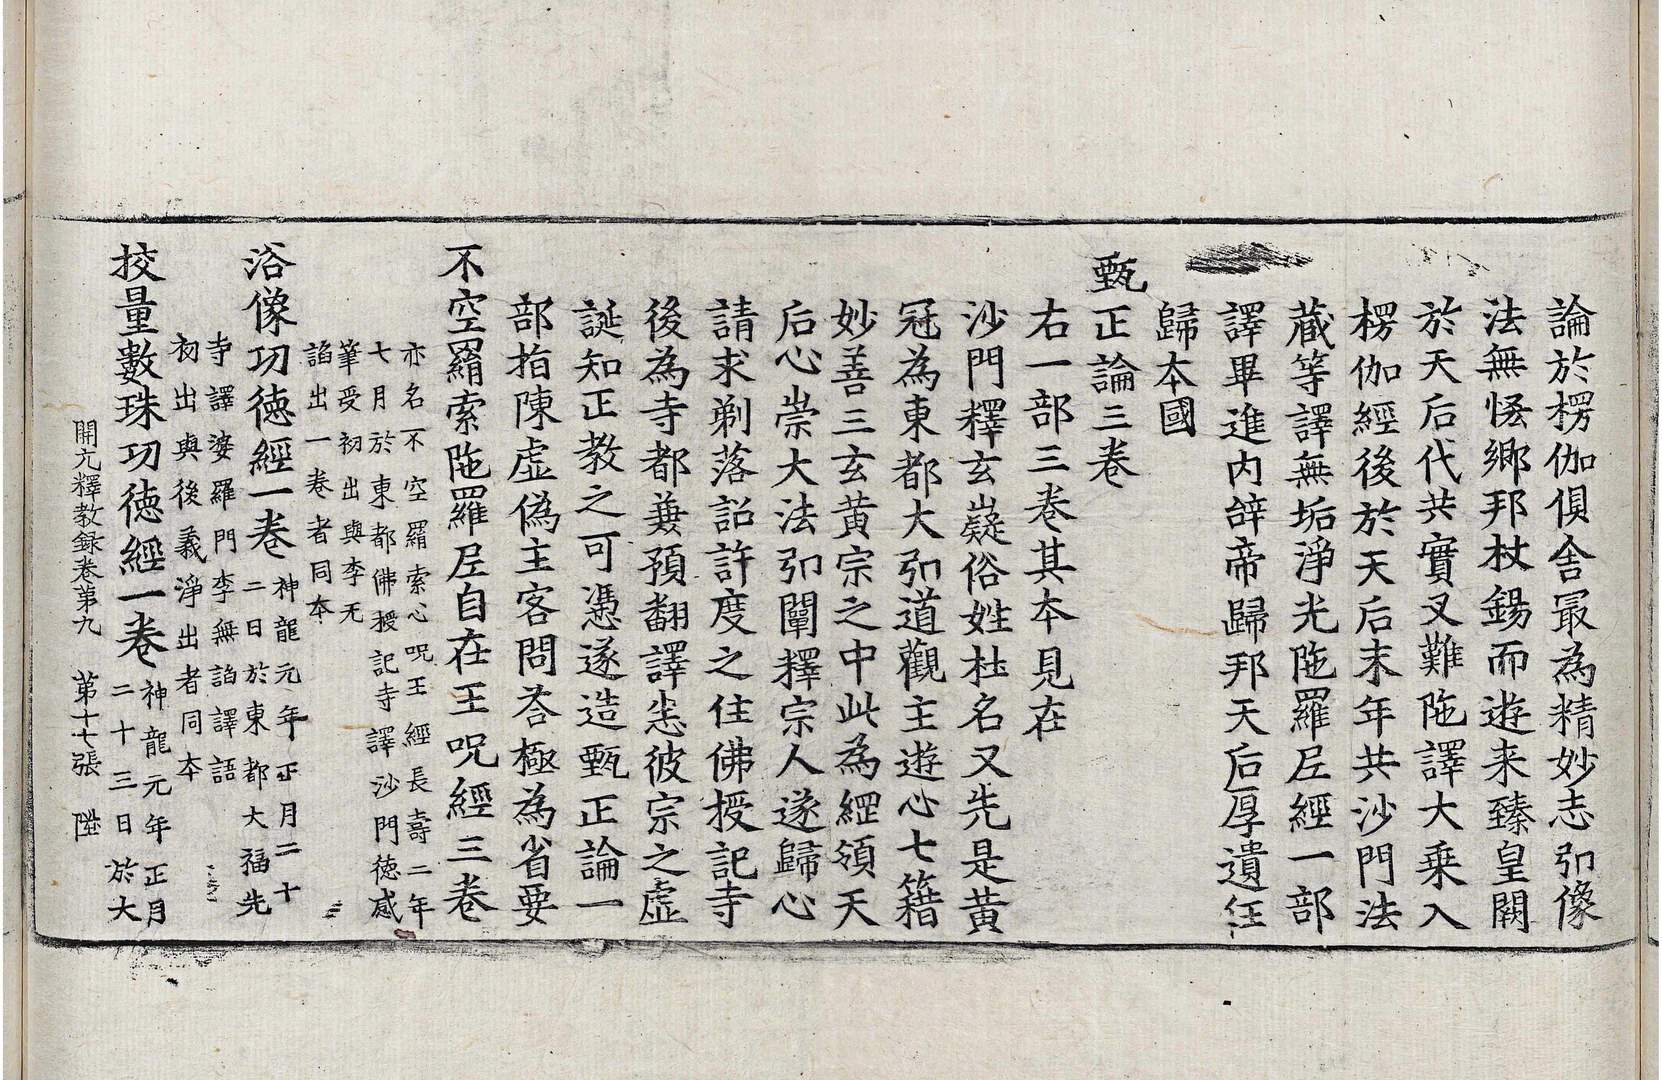 論於楞伽俱舍最為精妙志弘像
法無悋鄉邦杖錫而遊来臻皇闕
於天后代共實叉難陁譯大乗入
楞伽經後於天后末年共沙門法
藏等譯無垢淨光陁羅尼經一部
譯畢進内辝帝歸邦天后厚遺任
歸本國
甄正論三卷
右一部三卷其本見在
沙門釋玄嶷俗姓杜名乂先是黄
冠為東都大弘道觀主遊心七籍
妙善三玄黄宗之中此為綱領天
后心崇大法弘闡釋宗人遂歸心
請求剃落詔許度之住佛授記寺
後為寺都兼預翻譯悉彼宗之虛
誕知正教之可憑遂造甄正論一
部指陳虛偽主客問荅極為省要
不空羂索陁羅尼自在王呪經三卷
亦名不空羂索心呪王經長壽二年
七月於東都佛授記寺譯沙門徳感
筆受初出與李无
諂出一卷者同本
浴像功徳經一卷
神龍元年正月二十
二日於東都大福先
寺譯婆羅門李無諂譯語
初出與後義淨出者同本
挍量數珠功徳經一卷
神龍元年正月
二十三日於大
開元釋教録卷第九 第十七張 陞